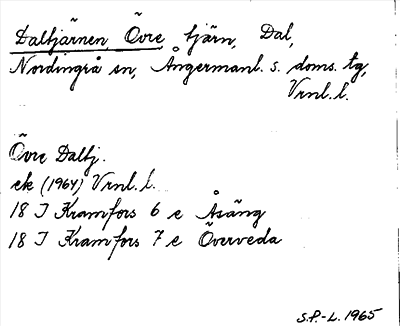 Daltjärnen, Övre, tjärn, Dal,
Nordingrå sn, Ångermanl. s. doms. tg,
Vrnl. l.
Övre Daltj.
ek (1964) Vrnl. l.
18 I Kramfors 6 e Åsäng
18 I Kramfors 7 e Överveda
S.P.-L. 1965